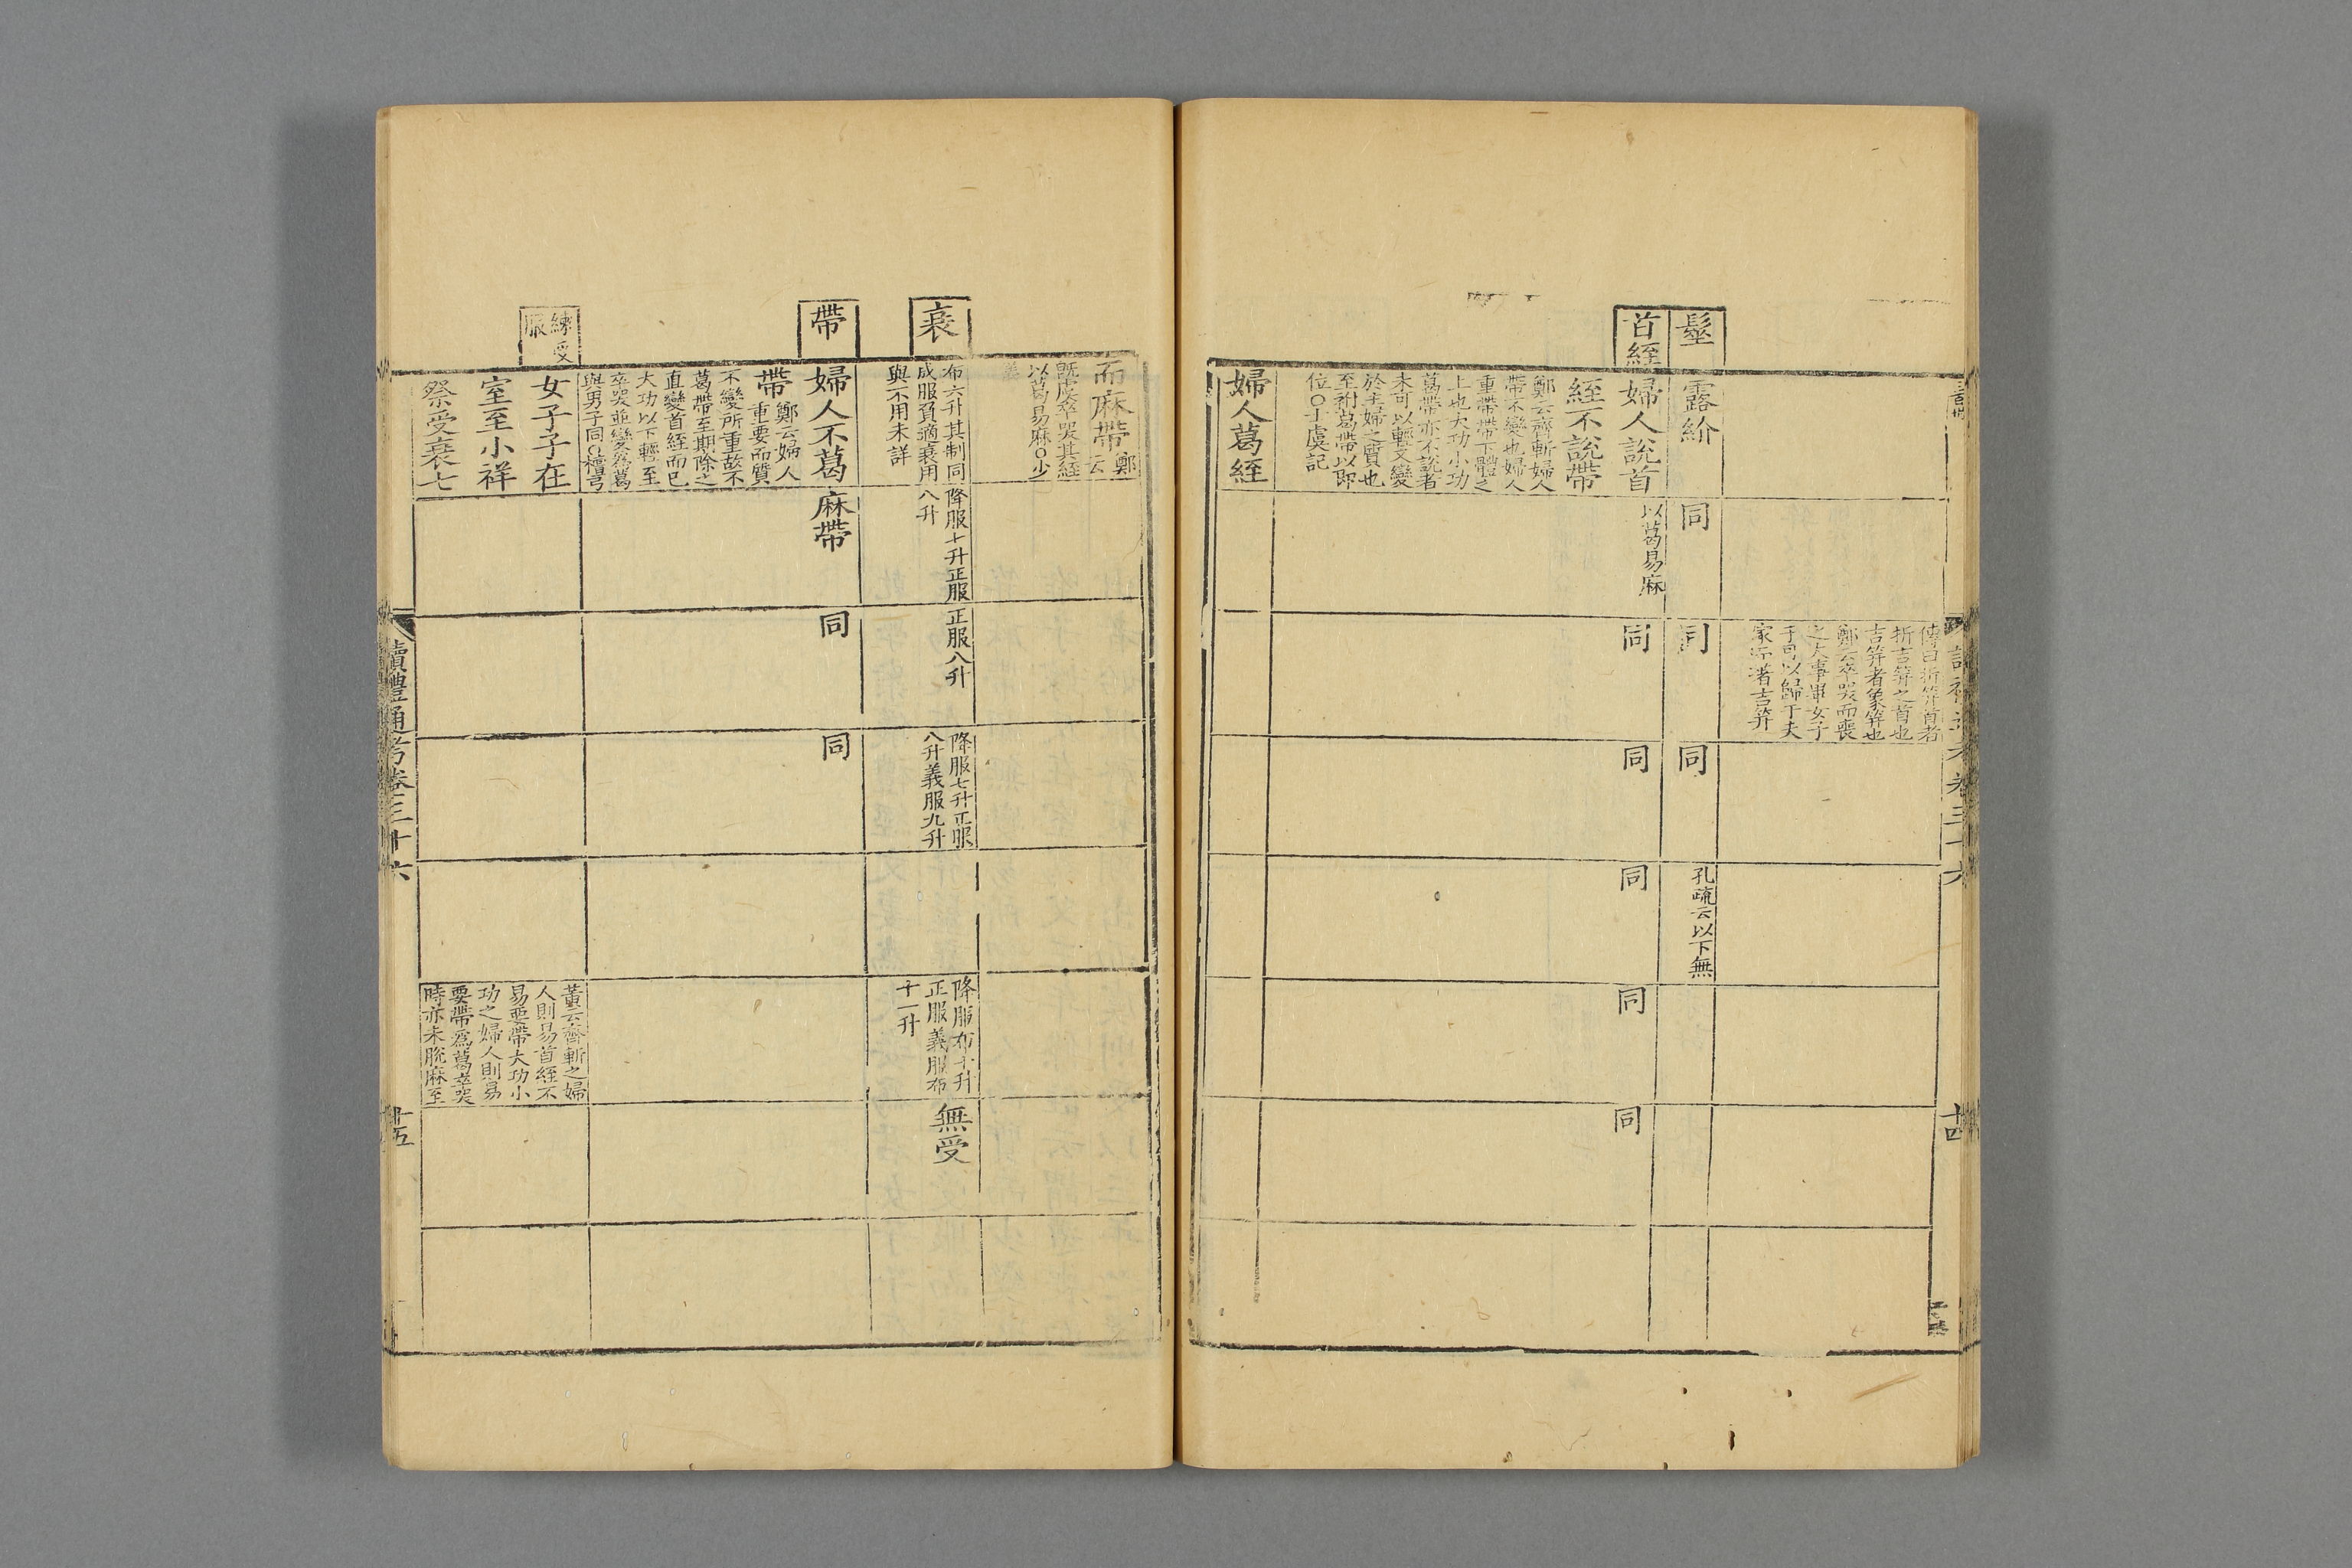 傳曰折笄首者
折吉笄之首也
吉笄者象笄也
鄭云卒哭而喪
之大事畢女子
子可以歸于夫
家而著吉笄
髽
露紒
同
同
同
孔疏云以下無
首絰
婦人說首
絰不說帶
鄭云齊斬婦人
帶不變也婦人
重帶帶下體之
上也大功小功
葛帶亦不說者
未可以輕文變
於主婦之質也
至祔葛帶以即
位〇士虞記
以葛易麻
同
同
同
同
同
婦人葛絰
十四
而麻帶
鄭云
既虞卒哭其絰
以葛易麻〇少
衰
布六升其制同
成服負適衰用
與不用未詳
降服七升正服
八升
正服八升
降服七升正服
八升義服九升
降服布十升
正服義服布
十一升
無受
帶
婦人不葛
帶
鄭云婦人
重要而質
不變所重故不
葛帶至期除之
直變首絰而已
大功以下輕至
卒哭並變爲葛
與男子同〇檀弓
麻帶
同
同
練受
服
女子子在
室至小祥
祭受衰七
黃云齊斬之婦
人則易首絰不
易要帶大功小
功之婦人則易
要帶爲葛卒哭
時亦未脫麻至
讀禮通考卷三十六
十五